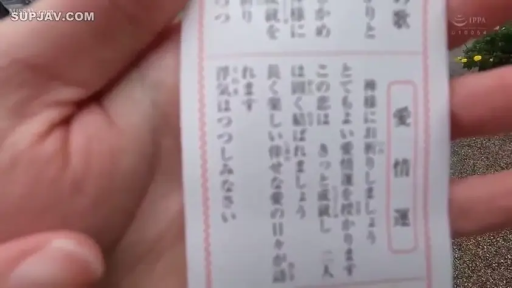 SUPJAV.COM
IPPA
の歌
りと
かめ
様に
就を
祈り
つつ
愛情運
神様にお祈りしましょう
とてもよい愛情運を授かります
この恋は きっと成就し 二人
は固く結ばれましょう
長く楽しい倖せな愛の日々が訪
れます
浮気はつつしみなさい